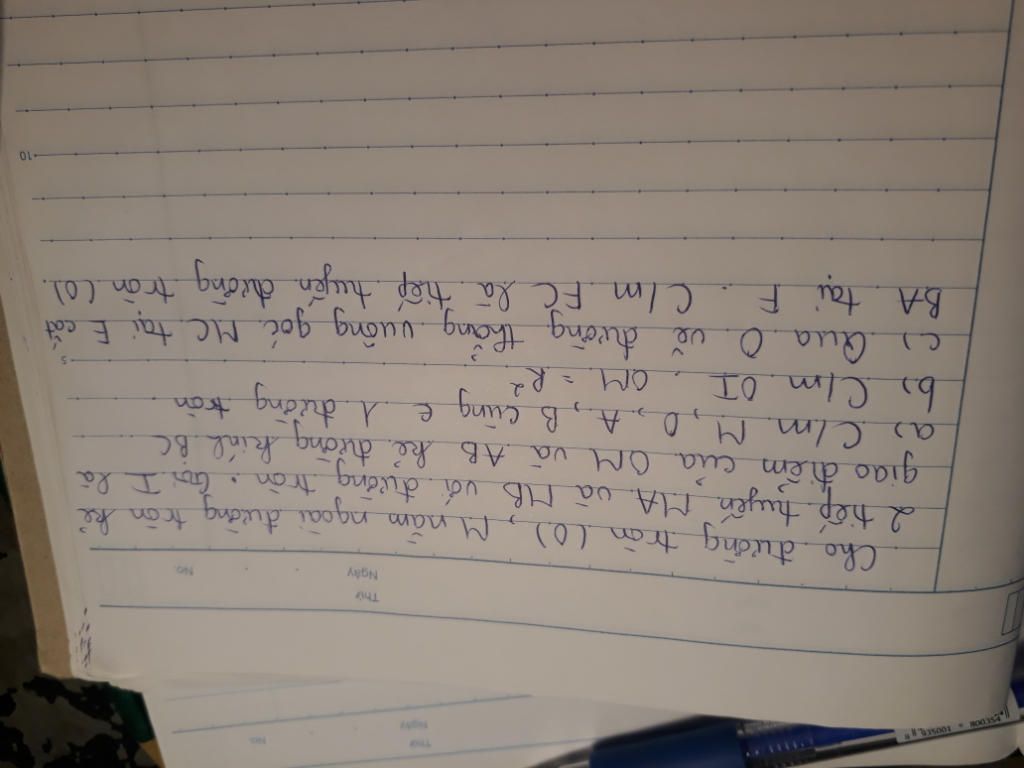 Thứ
Ngày No.
Cho đường tròn (O), M nằm ngoài đường tròn kẻ
2 tiếp tuyến MA và MB với đường tròn. Gọi I là
giao điểm của OM và AB kẻ đường kính BC
a) C/m M, O, A, B cùng ∈ 1 đường tròn
b) C/m OI . OM = R²
5
c) Qua O vẽ đường thẳng vuông góc MC tại E cắt
BA tại F . C/m FC là tiếp tuyến đường tròn (O).
10
Thứ
Ngày No.